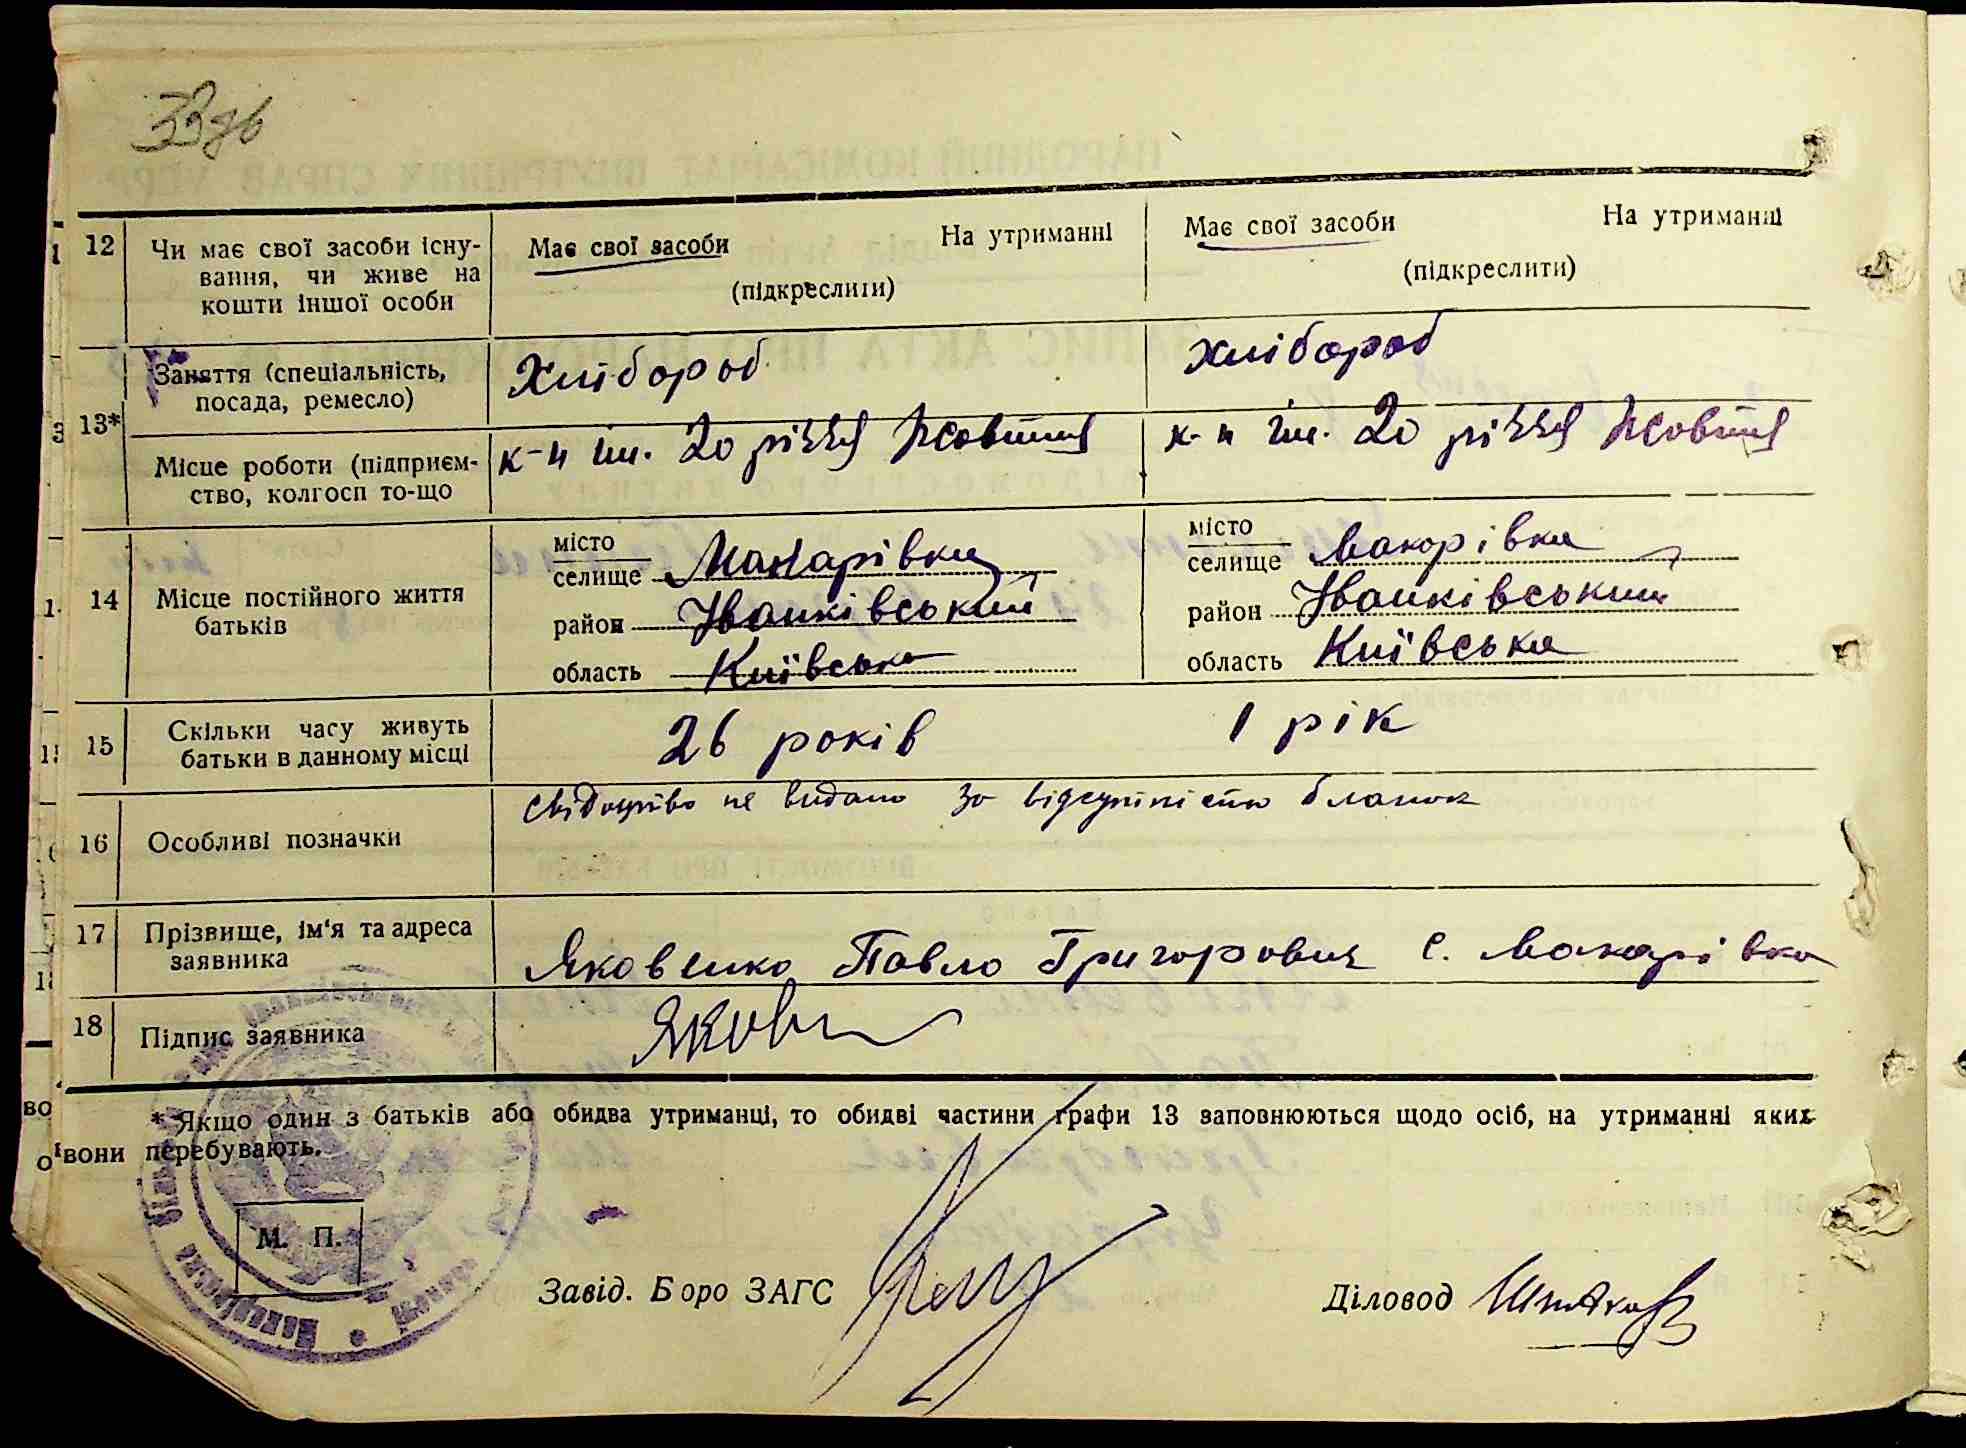 33 зв
12 Чи має свої засоби існу-
вання, чи живе на
кошти іншої особи
Має свої засоби На утриманні
(підкреслити)
Має свої засоби На утриманні
(підкреслити)
13*
Заняття (спеціальність,
посада, ремесло)
Хлібороб
Хлібороб
Місце роботи (підприєм-
ство, колгосп то-що
к-п ім. 20 річчя Жовтня
к-п ім. 20 річчя Жовтня
14 Місце постійного життя
батьків
місто
селище Макарівка
район Іванківський
область Київська
місто
селище Макарівка
район Іванківський
область Київська
15 Скільки часу живуть
батьки в данному місці
26 років
1 рік
16 Особливі позначки
свідоцтво не видано за відсутністю бланок
17 Прізвище, ім'я та адреса
заявника
Яковенко Павло Григорович с. Макарівка
18 Підпис заявника
* Якщо один з батьків або обидва утриманці, то обидві частини графи 13 заповнюються щодо осіб, на утриманні яких
вони перебувають.
М. П.
Завід. Бюро ЗАГС
Діловод